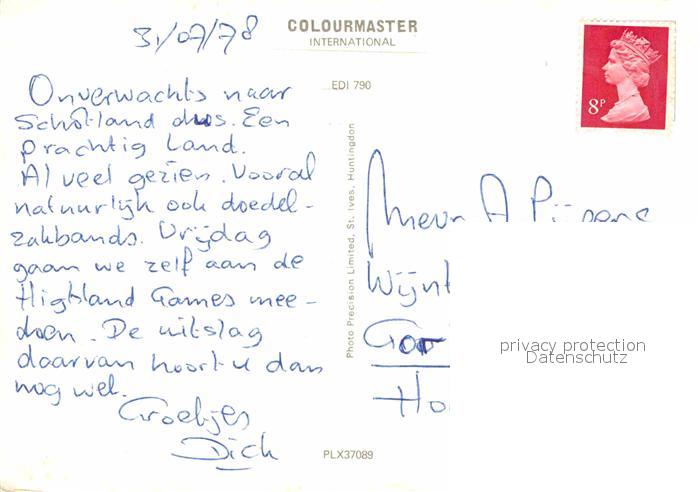 31/07/78
COLOURMASTER
INTERNATIONAL
EDI 790
8P
Onverwachts naar
Schotland dus. Een
prachtig land.
Al veel gezien. Vooral
natuurlijk ook doedel-
zakbands. Vrijdag
gaan we zelf aan de
Highland Games mee-
doen. De uitslag
daarvan hoort u dan
nog wel.
Groetjes
Dick
Photo Precision Limited, St. Ives, Huntingdon
Mevr A
Wijnt
Ho
privacy protection
Datenschutz
PLX37089